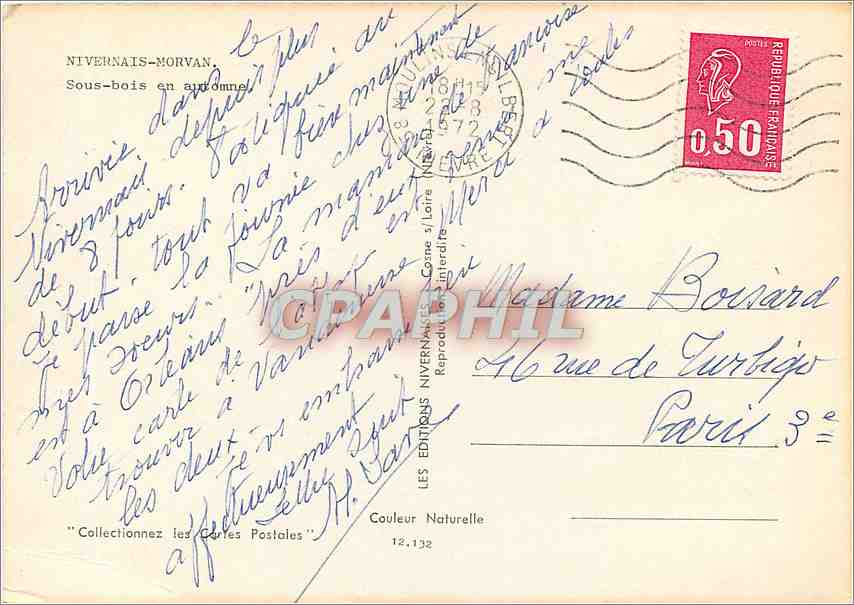 NIVERNAIS-MORVAN.
Sous-bois en automne.
Arrivée dans le
Nivernais depuis plus
de 8 jours. Fatiguée au
début, tout va bien maintenant
Je passe la journée chez une de
mes soeurs. La maman de Françoise
est à Orléans près d'eux
Votre carte de est venue me
trouver à Vandenesse Merci à toutes
les deux
Je vs embrasse bien
affectueusement
LES EDITIONS NIVERNAISES Cosne s/Loire (Nièvre)
Reproduction interdite
MOULINS-ENGILBERT
18H15
22-8
1972
58 NIEVRE
POSTES
REPUBLIQUE FRANÇAISE
0,50
CPAPHIL
Madame Boisard
46 rue de Turbigo
Paris 3e
"Collectionnez les Cartes Postales"
Couleur Naturelle
12.132